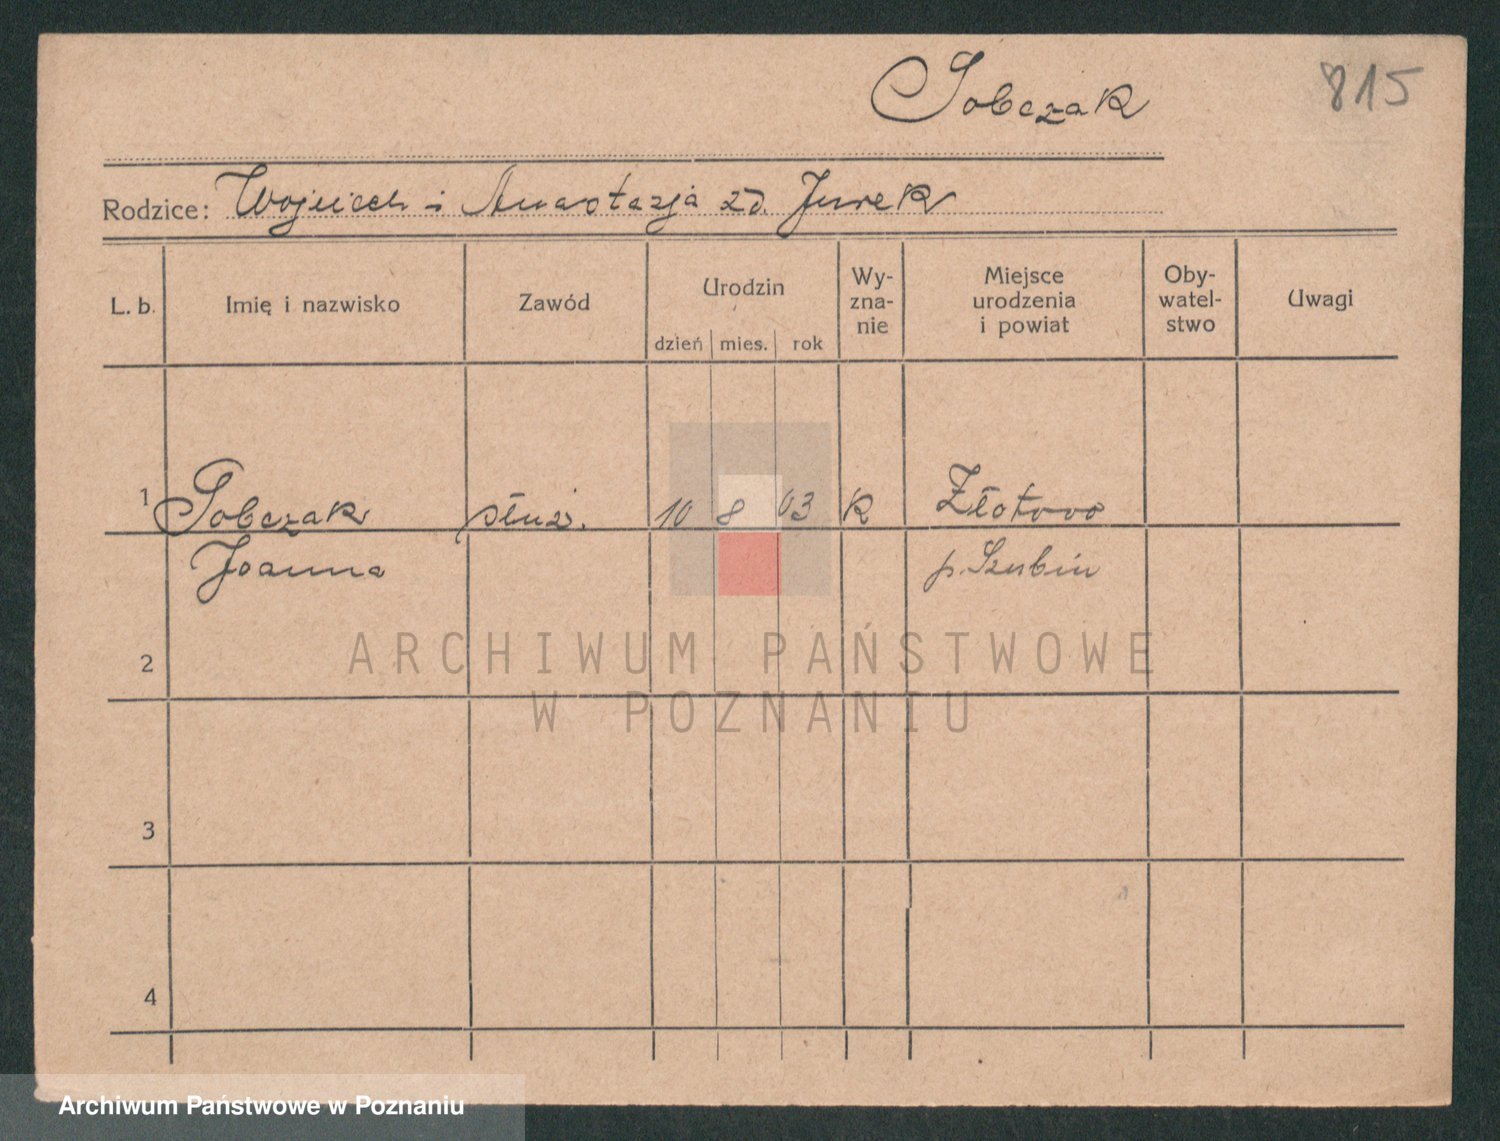 Sobczak
815
Rodzice: Wojciech i Anastazja zd. Jurek
L. b. Imię i nazwisko Zawód Urodzin dzień mies. rok Wy-zna-nie Miejsce urodzenia i powiat Oby-watel-stwo Uwagi
1 Sobczak służ. 10 8 03 K Złotowo
Joanna p. Szubin
2
ARCHIWUM PAŃSTWOWE
W POZNANIU
3
4
Archiwum Państwowe w Poznaniu